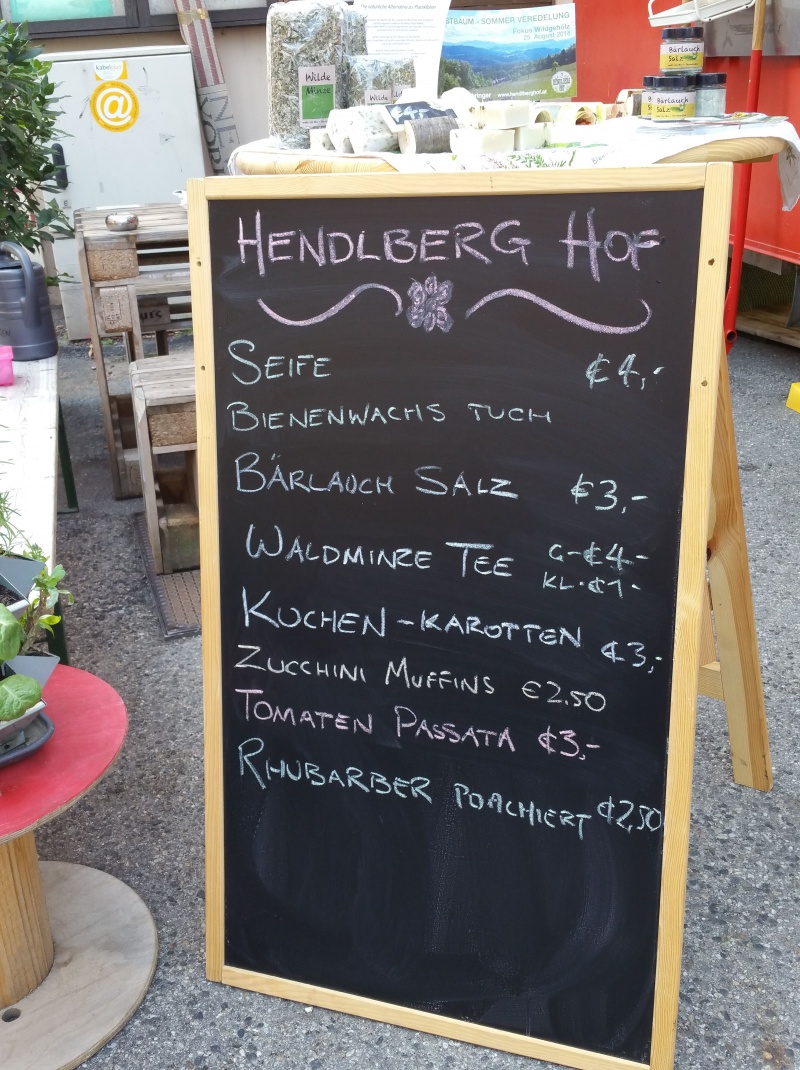 Wilde
Minze
OBSTBAUM - SOMMER VEREDELUNG
Fokus Wildgehölz
25. August 2018
Bärlauch
Salz
Bärlauch
@
HENDLBERG HOF
SEIFE €4,-
BIENENWACHS TUCH
BÄRLAUCH SALZ €3,-
WALDMINZE TEE G-€4-
KL-€1-
KUCHEN-KAROTTEN €3,-
ZUCCHINI MUFFINS €2.50
TOMATEN PASSATA €3,-
RHUBARBER POACHIERT €2,50